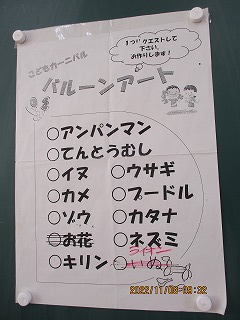 1つリクエストして
下さい。
お作りします!
こどもカーニバル
バルーンアート
○アンパンマン
○てんとうむし
○イヌ ○ウサギ
○カメ ○プードル
○ゾウ ○カタナ
○お花 ○ネズミ
ライオン
○キリン ○いぬ